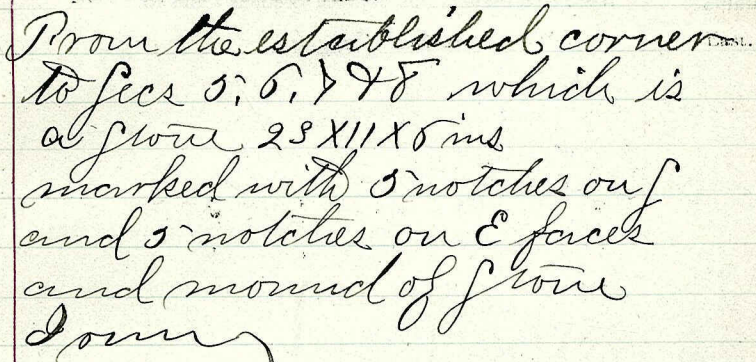 From the established corner
to Secs 5, 6, 7 & 8 which is
a stone 23 X 11 X 6 ins
marked with 5 notches on S
and 5 notches on E faces
and mound of stone
I run